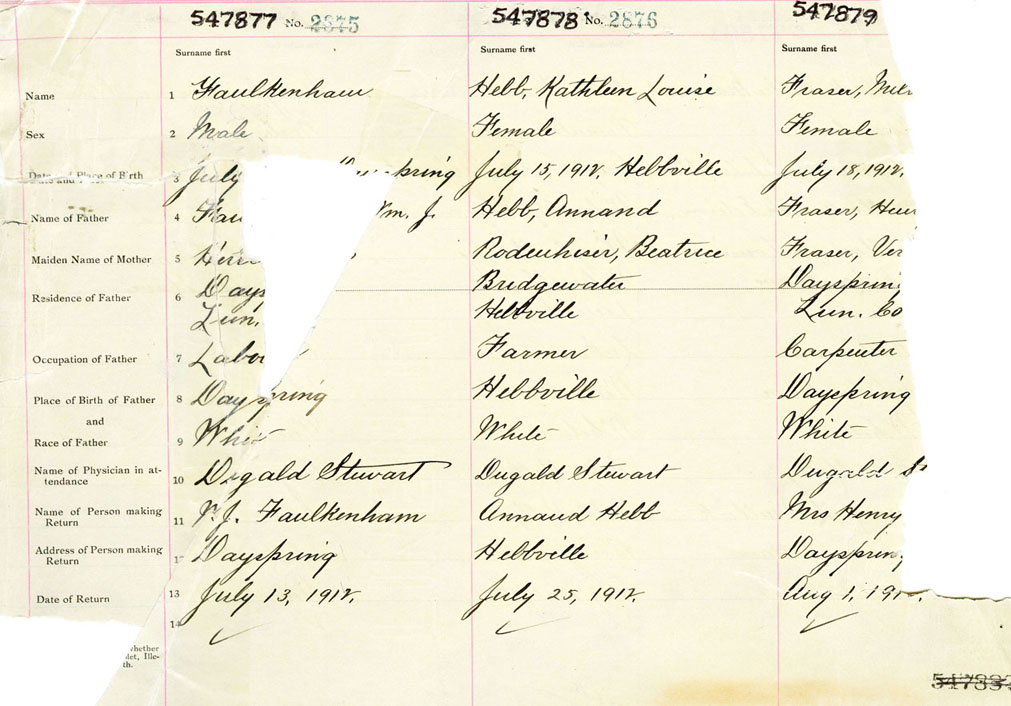 547877 No. 2875 547878 No. 2876 547879
Surname first Surname first Surname first
Name 1 Faulkenham Hebb, Kathleen Louise Fraser,
Sex 2 Male Female Female
Date and Place of Birth 3 July July 15, 1912, Hebbville July 18, 1912,
Name of Father 4 Wm. J. Hebb, Annand Fraser,
Maiden Name of Mother 5 Rodenhiser, Beatrice Fraser,
Residence of Father 6 Bridgewater
Lun. Hebbville Lun. Co
Occupation of Father 7 Farmer Carpenter
Place of Birth of Father 8 Dayspring Hebbville Dayspring
and
Race of Father 9 White White
Name of Physician in at-
tendance 10 Dugald Stewart Dugald Stewart Dugald
Name of Person making
Return 11 J. Faulkenham Annaud Hebb Mrs Henry
Address of Person making
Return Dayspring Hebbville
Date of Return 13 July 13, 1912, July 25, 1912, Aug 1,
14